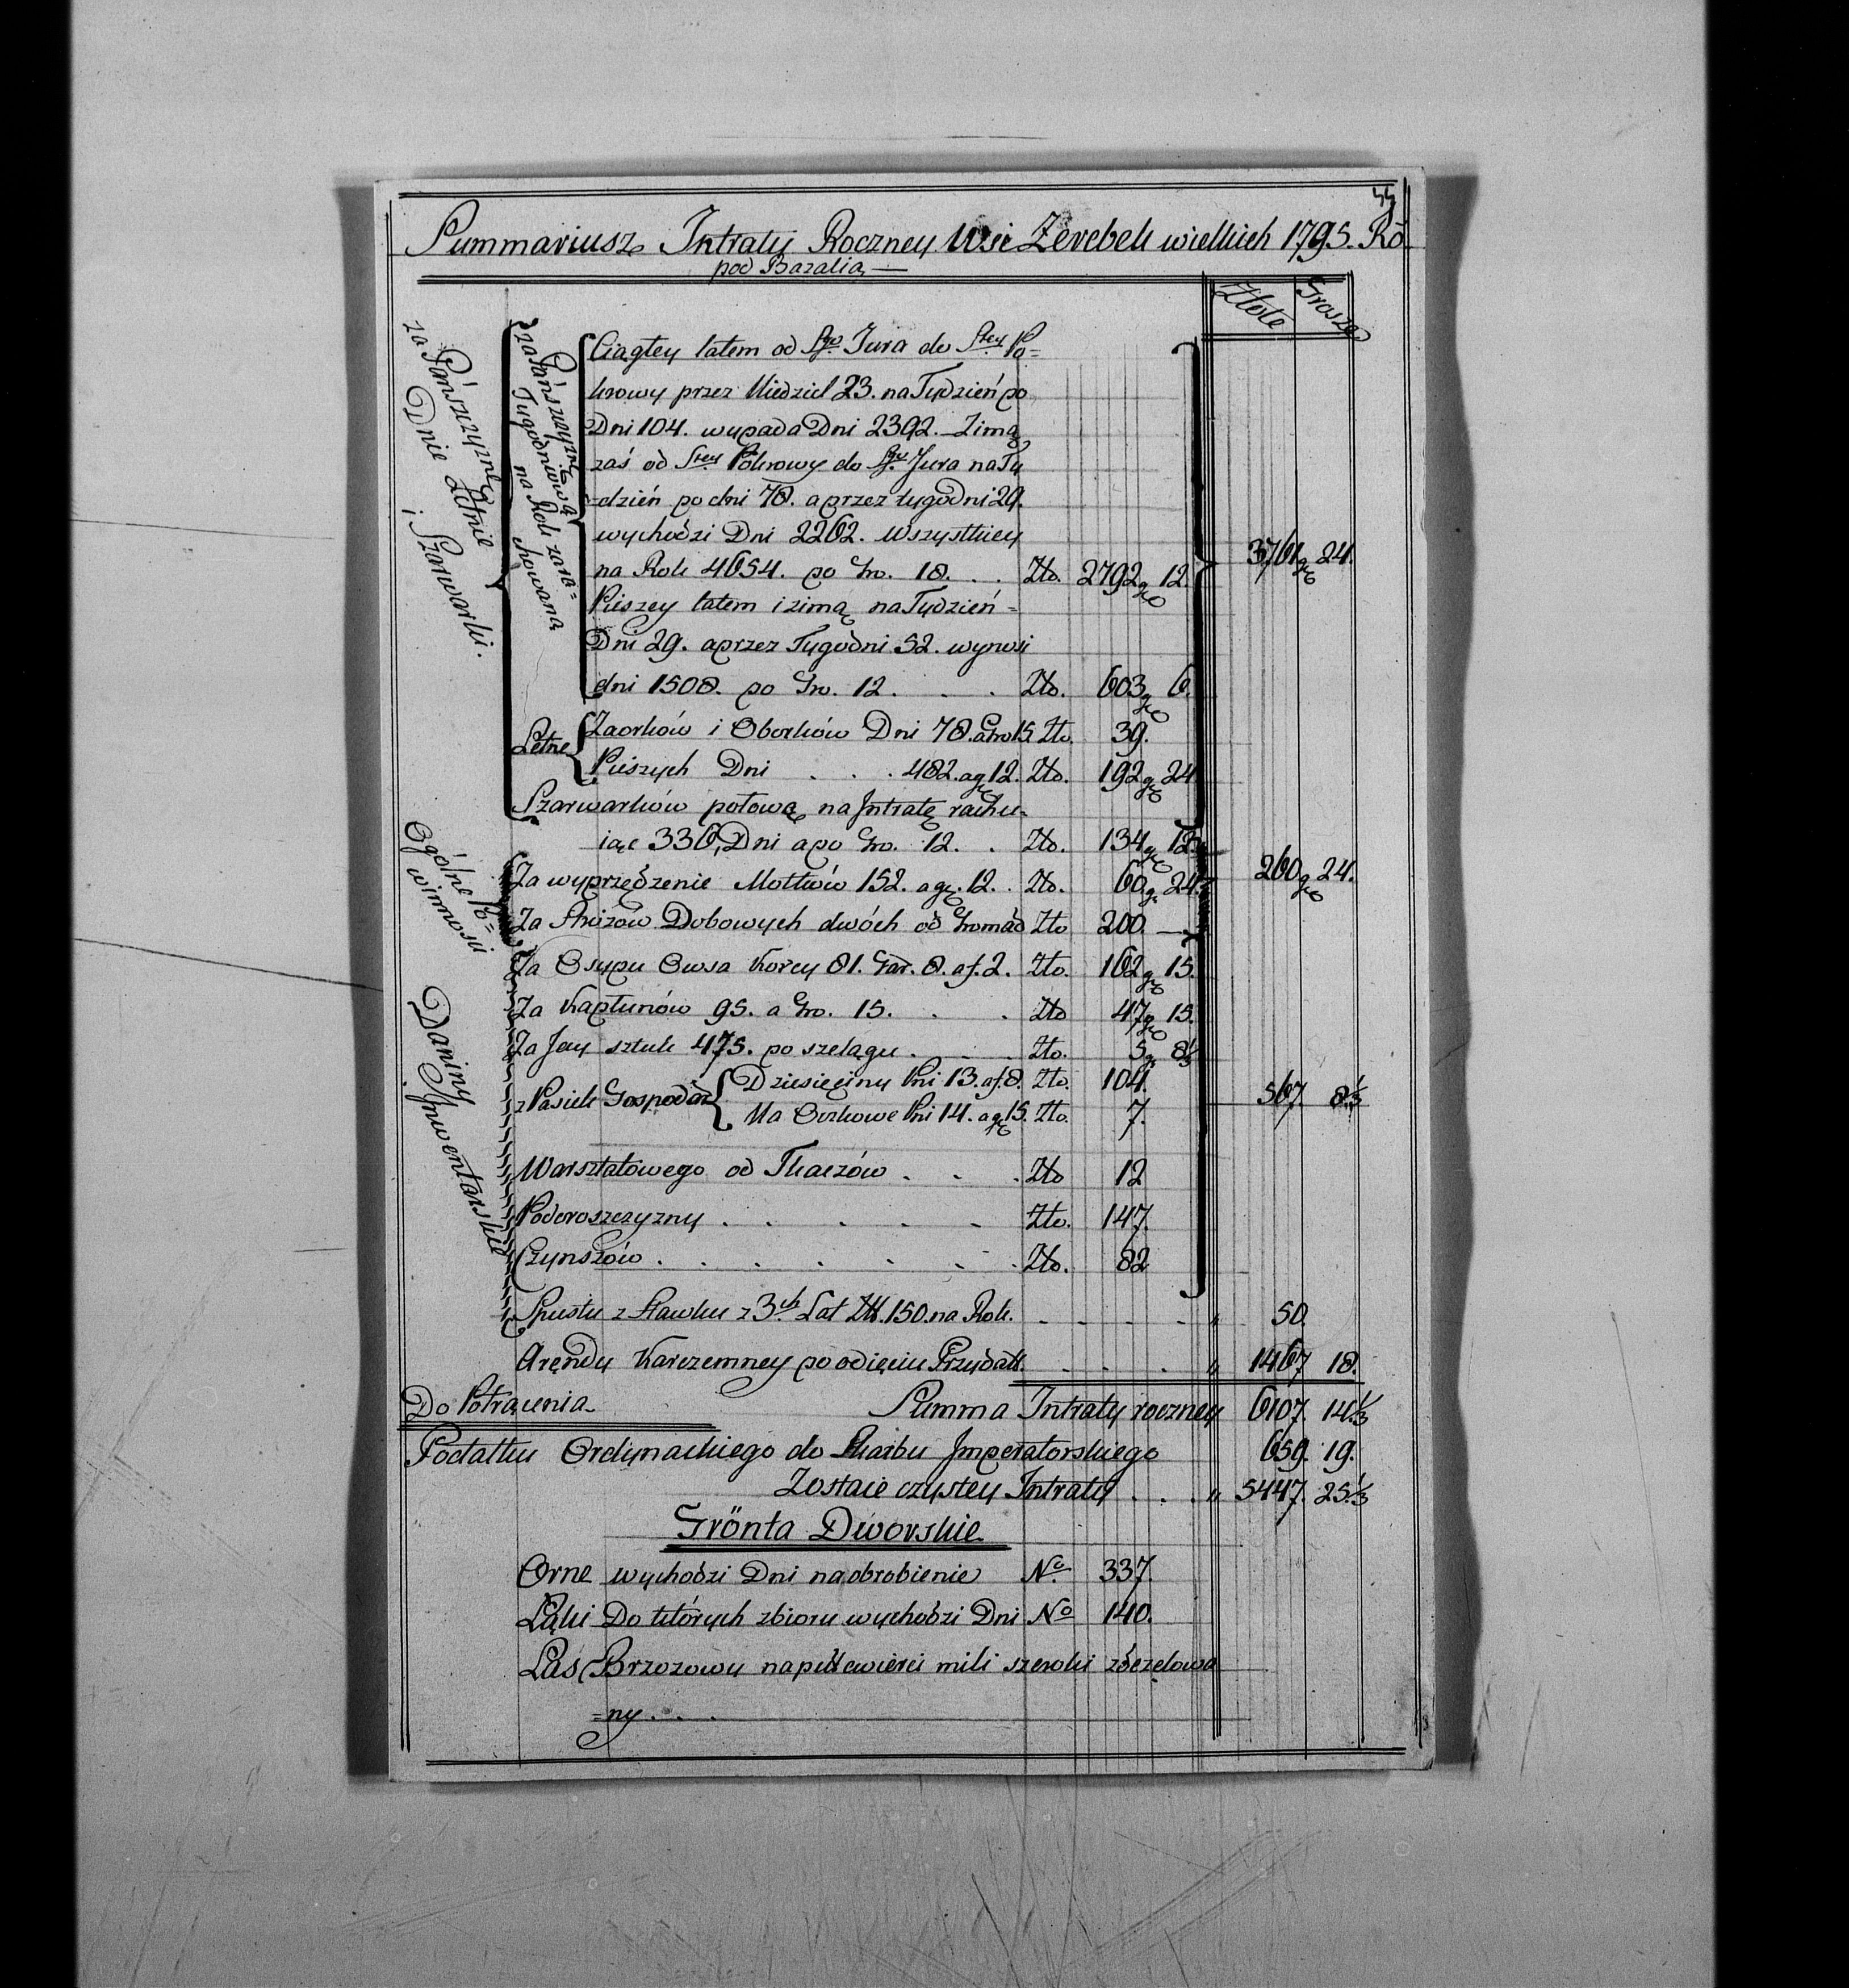 Summariusz Intraty Roczney Wsi Zerebek wielkich 1795. Ro
pod Bazalią
Złote Grosze
za Pańszczyznę
Dnie Letnie
i Szarwarki.
za Pańszczyznę
Tygodniową
na Rok zara=
chowaną
Ciągłey latem od Sgo Jura do Stey Po=
krowy przez Niedziel 23. na Tydzień po
Dni 104. wypada Dni 2392. Zimą
zaś od Stey Pokrowy do Sgo Jura na Ty
=dzień po dni 78. a przez tygodni 29.
wychodzi Dni 2262. Wszystkiey
na Rok 4654. po Gro. 18. . . Zło. 2792 g 12.
3761 g 24.
Pieszey latem i zimą na Tydzień =
Dni 29. a przez Tygodni 52. wynosi
dni 1508. po Gro. 12. . . . Zło. 603 g 6.
Letne
Zaorków i Oborków Dni 78. a Gro 15 Zło. 39.
Pieszych Dni . . . 482. a g 12. Zło. 192 g 24
Szarwarków połowę na Intratę rachu-
iąc 336, Dni a po Gro. 12. . Zło. 134 g 12.
Ogólne Po=
winnosci
Za wyprzędzenie Motków 152. a g. 12. . Zło. 60 g. 24.
260 g 24.
Za Stróżów Dobowych dwóch od Gromad Zło 200. —
Daniny Jnwentarskie
Za Osypu Owsa Korcy 81. Gar. 8. a f. 2. Zło. 162 g 15.
Za Kapłunów 95. a Gro. 15. . . Zło 47 g 15.
Za Jay sztuk 475. po szelągu . . . Zło. 5 g. 8⅓
z Pasiek Gospodar
Dziesięciny Pni 13. a f. 8. Zło. 104.
Na Oczkowe Pni 14. a g 15. Zło. 7.
567. 8⅓
Warsztatowego od Tkaczów . . . Zło 12
Podoroszczyzny . . . . . Zło. 147.
Czynszów . . . . . . . Zło. 82
Spustu z Stawku z 3ch Lat Zł. 150. na Rok. . . . . " 50.
Arendy Karczemney po odięciu Przydatk. . . . " 1467 18.
Do Potrącenia Summa Intraty roczney 6107. 14⅓
Podatku Ordynackiego do Skarbu Jmperatorskiego 659. 19.
Zostaie czystey Intraty . . . " 5447. 25⅓
Grönta Dworskie
Orne wychodzi Dni na obrobienie No. 337.
Łąki Do których zbioru wychodzi Dni No 140.
Las Brzozowy na puł cwierci mili szeroki
=ny . . .